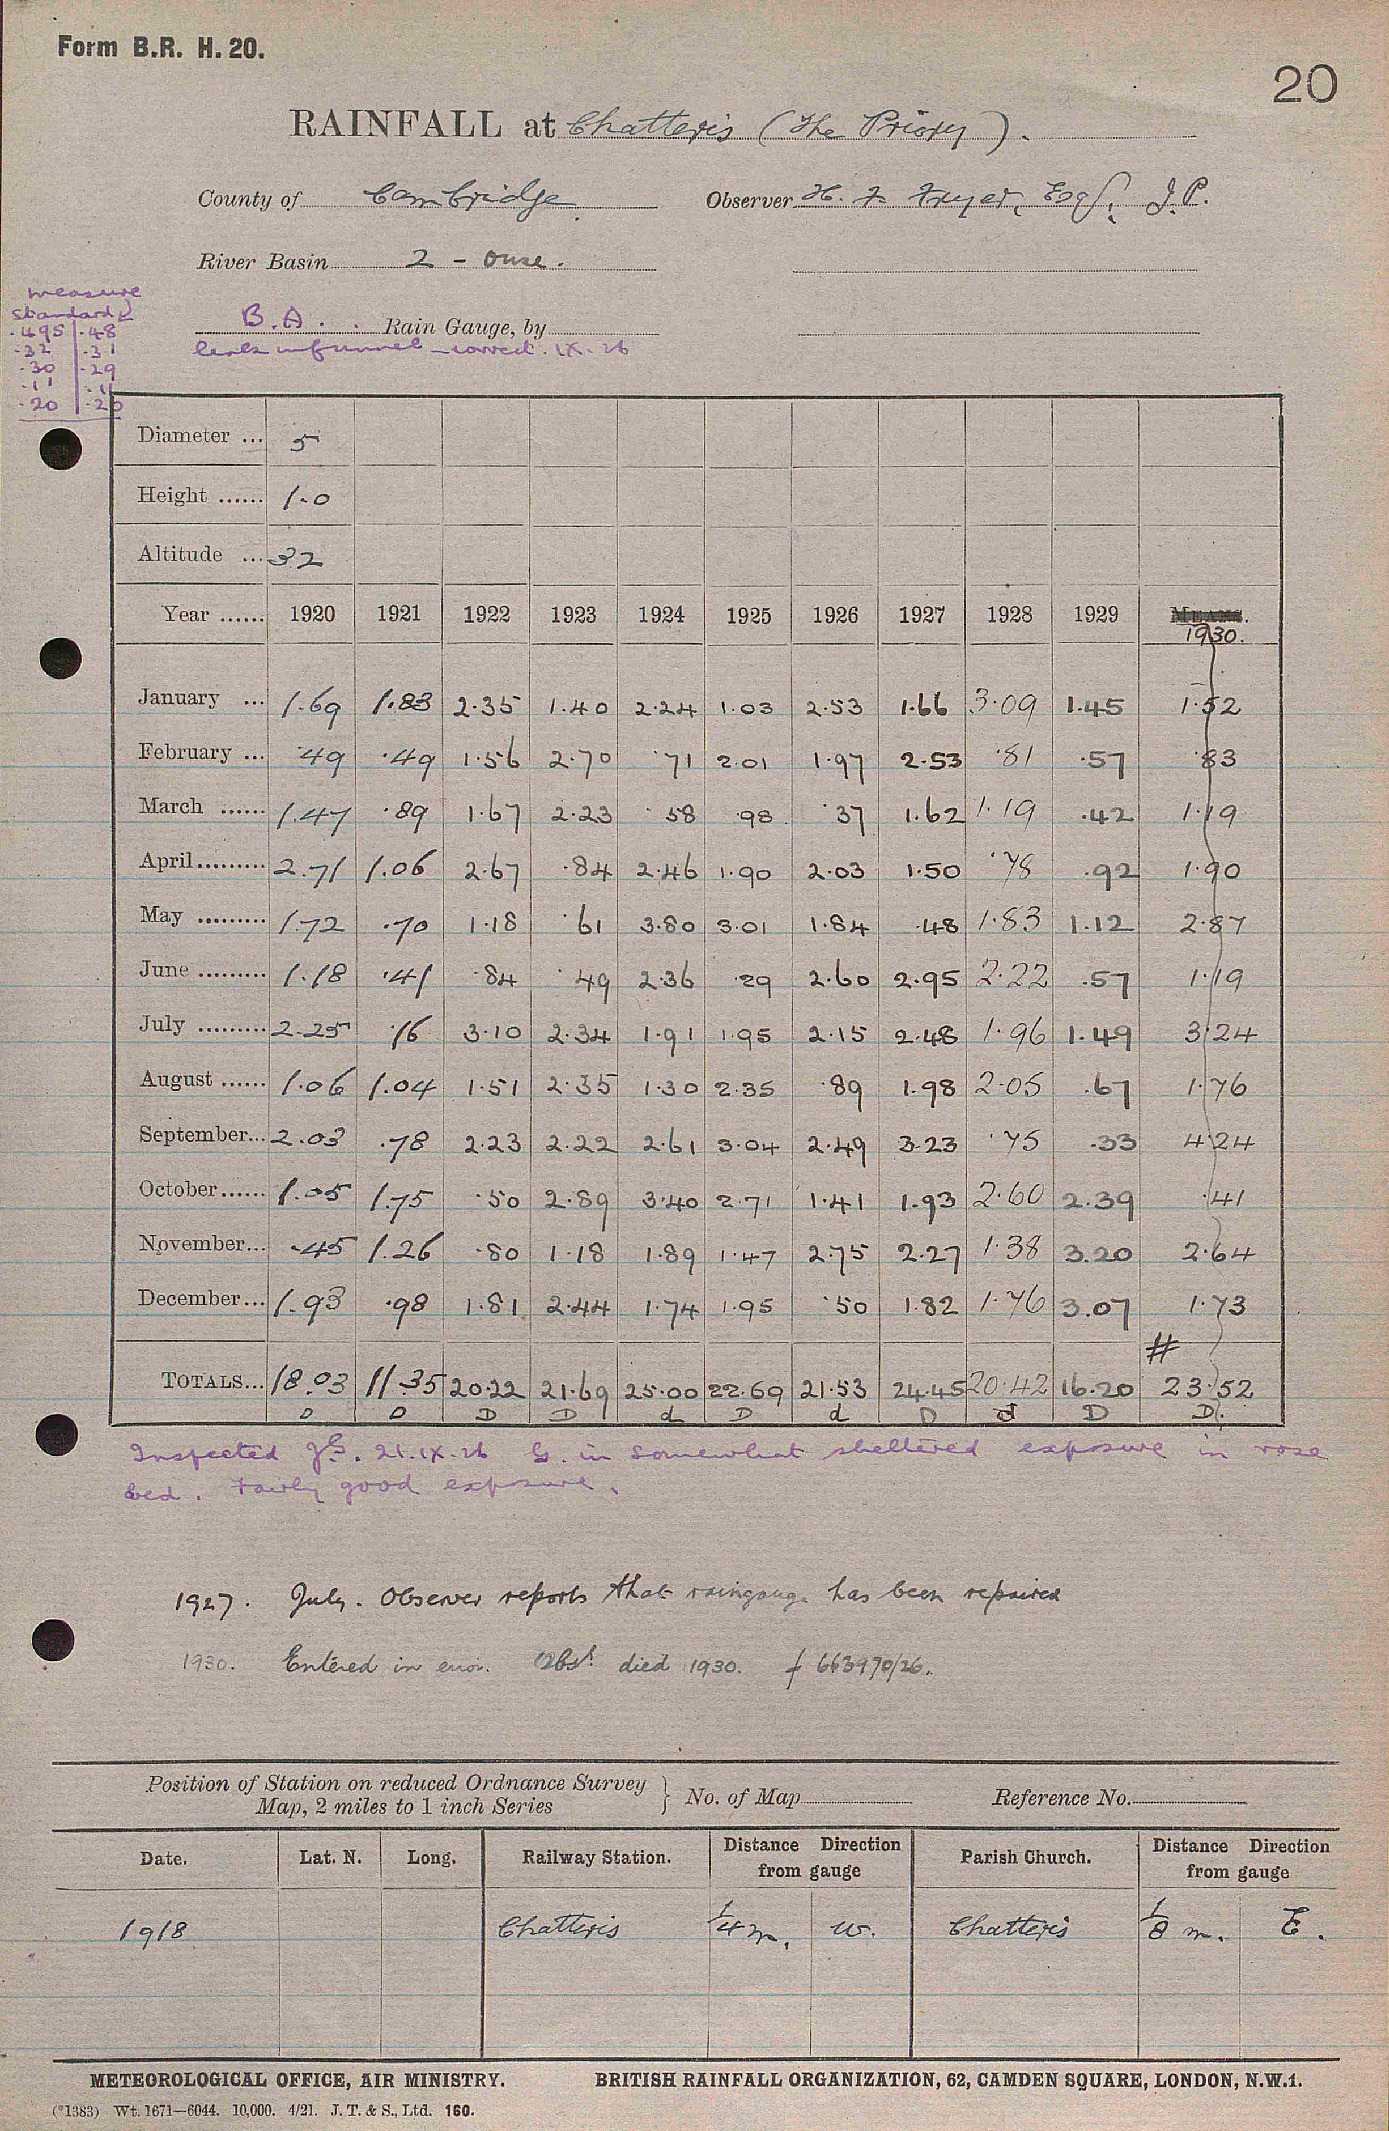 Form B.R. H. 20.
20
RAINFALL at Chatteris (The Priory).
County of Cambridge Observer H. F. Fryer, Esq., J.P.
River Basin 2 - Ouse.
measure
standard
.495 .48
.32 .31
.30 .29
.11 .11
.20 .20
B.A. . Rain Gauge, by
leak in funnel - correct. IX. 26
Diameter ... 5
Height ...... 1.0
Altitude ... 32
Year ...... 1920 1921 1922 1923 1924 1925 1926 1927 1928 1929 MEANS. 1930.
January ... 1.69 1.83 2.35 1.40 2.24 1.03 2.53 1.66 3.09 1.45 1.52
February ... .49 .49 1.56 2.70 .71 2.01 1.97 2.53 .81 .57 .83
March ...... 1.47 .89 1.67 2.23 .58 .98 .37 1.62 1.19 .42 1.19
April......... 2.71 1.06 2.67 .84 2.46 1.90 2.03 1.50 .78 .92 1.90
May ......... 1.72 .70 1.18 .61 3.80 3.01 1.84 .48 1.83 1.12 2.87
June ......... 1.18 .41 .84 .49 2.36 .29 2.60 2.95 2.22 .57 1.19
July ......... 2.25 .16 3.10 2.34 1.91 1.95 2.15 2.48 1.96 1.49 3.24
August ...... 1.06 1.04 1.51 2.35 1.30 2.35 .89 1.98 2.05 .67 1.76
September... 2.03 .78 2.23 2.22 2.61 3.04 2.49 3.23 .75 .33 4.24
October...... 1.05 1.75 .50 2.89 3.40 2.71 1.41 1.93 2.60 2.39 .41
November... .45 1.26 .80 1.18 1.89 1.47 2.75 2.27 1.38 3.20 2.64
December... 1.93 .98 1.81 2.44 1.74 1.95 .50 1.82 1.76 3.07 1.73
#
TOTALS... 18.03 11.35 20.22 21.69 25.00 22.69 21.53 24.45 20.42 16.20 23.52
D D D D d D d D d D D.
Inspected 21.IX.26 G. in somewhat sheltered exposure in rose
bed. Fairly good exposure.
1927. July. Observer reports that raingauge has been repaired
1930. Entered in error. Obsr. died 1930. f 663970/26.
Position of Station on reduced Ordnance Survey
Map, 2 miles to 1 inch Series } No. of Map Reference No.
Date. Lat. N. Long. Railway Station. Distance Direction from gauge Parish Church. Distance Direction from gauge
1918 Chatteris 1/4 m. W. Chatteris 1/8 m. E.
METEOROLOGICAL OFFICE, AIR MINISTRY. BRITISH RAINFALL ORGANIZATION, 62, CAMDEN SQUARE, LONDON, N.W.1.
(*1383) Wt. 1671—6044. 10,000. 4/21. J. T. & S., Ltd. 160.